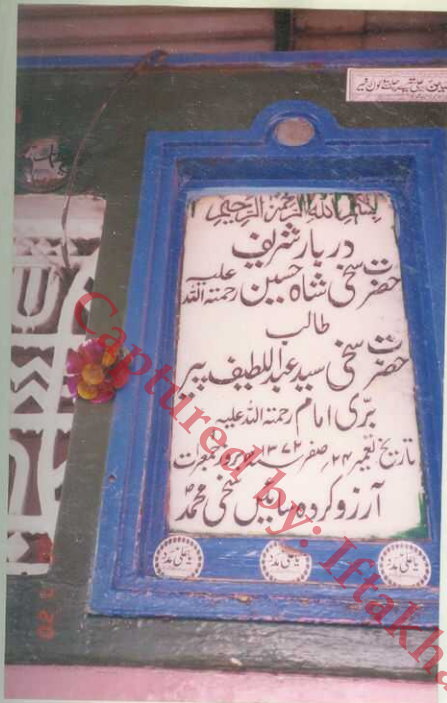 بسم الله الرحمن الرحیم
دربار شریف
حضرت سخی شاہ حسین رحمتہ اللہ علیہ
طالب
حضرت سخی سید عبداللطیف پیر
بری امام رحمتہ اللہ علیہ
تاریخ تعمیر ۲۴ صفر سنہ ۱۳۷۲ بروز جمعرات
آرزو کردہ سائیں سخی محمد
یا علی مدد
یا علی مدد
یا علی مدد
Captured by: Iftakha